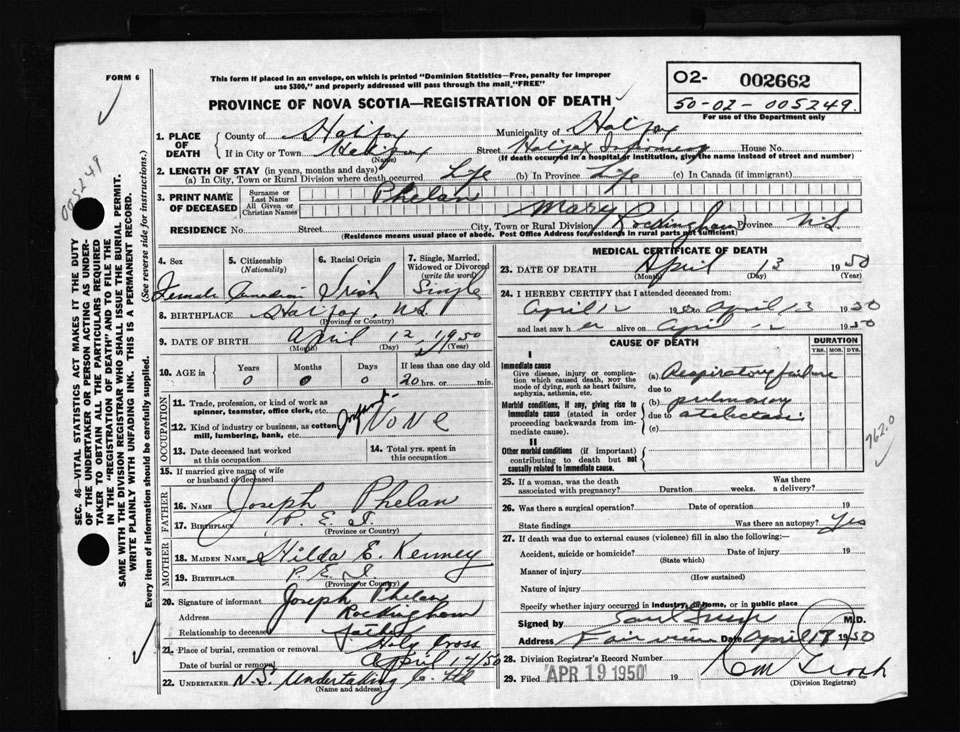 FORM 6
This form if placed in an envelope, on which is printed "Dominion Statistics—Free, penalty for improper
use $300," and properly addressed will pass through the mail, "FREE"
O2- 002662
50-02-005249.
For use of the Department only
PROVINCE OF NOVA SCOTIA—REGISTRATION OF DEATH
1. PLACE OF DEATH
County of Halifax Municipality of Halifax
If in City or Town Halifax Street Halifax Infirmary House No.
(Name) (If death occurred in a hospital or institution, give the name instead of street and number)
2. LENGTH OF STAY (in years, months and days)
(a) In City, Town or Rural Division where death occurred Life (b) In Province Life (c) In Canada (if immigrant)
3. PRINT NAME OF DECEASED
Surname or Last Name Phelan
All Given or Christian Names Mary
RESIDENCE No. Street City, Town or Rural Division Rockingham Province N.S.
(Residence means usual place of abode. Post Office Address for residents in rural parts not sufficient)
005249
SEC. 46—VITAL STATISTICS ACT MAKES IT THE DUTY
OF THE UNDERTAKER OR PERSON ACTING AS UNDER-
TAKER TO OBTAIN ALL THE PARTICULARS REQUIRED
IN THE "REGISTRATION OF DEATH" AND TO FILE THE
SAME WITH THE DIVISION REGISTRAR WHO SHALL ISSUE THE BURIAL PERMIT.
WRITE PLAINLY WITH UNFADING INK. THIS IS A PERMANENT RECORD.
Every item of information should be carefully supplied. (See reverse side for instructions.)
4. Sex Female
5. Citizenship (Nationality) Canadian
6. Racial Origin Irish
7. Single, Married, Widowed or Divorced (write the word) Single
8. BIRTHPLACE Halifax, N.S.
(Province or Country)
9. DATE OF BIRTH April 12 1950
(Month) (Day) (Year)
10. AGE in Years 0 Months 0 Days 0 If less than one day 20 hrs. or min.
OCCUPATION
11. Trade, profession, or kind of work as
spinner, teamster, office clerk, etc.
12. Kind of industry or business, as cotton
mill, lumbering, bank, etc.
Infant None
13. Date deceased last worked at this occupation
14. Total yrs. spent in this occupation
15. If married give name of wife
or husband of deceased
FATHER
16. NAME Joseph Phelan
17. BIRTHPLACE P.E.I.
(Province or Country)
MOTHER
18. MAIDEN NAME Hilda E. Kenney
19. BIRTHPLACE P.E.I.
(Province or Country)
20. Signature of informant Joseph Phelan
Address Rockingham
Relationship to deceased father
21. Place of burial, cremation or removal Holy Cross
Date of burial or removal April 17/50
22. UNDERTAKER N.S. Undertaking Co. Ltd
(Name and address)
MEDICAL CERTIFICATE OF DEATH
23. DATE OF DEATH April 13 1950
(Month) (Day) (Year)
24. I HEREBY CERTIFY that I attended deceased from:
April 12 1950 to April 13 1950
and last saw her alive on April 12 1950
CAUSE OF DEATH
DURATION
YRS. MOS. DYS.
I
Immediate cause
Give disease, injury or complica-
tion which caused death, NOT the
mode of dying, such as heart failure,
asphyxia, asthenia, etc.
(a) Respiratory failure
due to
Morbid conditions, if any, giving rise to
immediate cause (stated in order
proceeding backwards from im-
mediate cause).
(b) pulmonary
due to atelectasis
(c)
762.0
II
Other morbid conditions (if important)
contributing to death but not
causally related to immediate cause.
25. If a woman, was the death
associated with pregnancy? Duration weeks. Was there a delivery?
26. Was there a surgical operation? Date of operation 19
State findings Was there an autopsy? Yes
27. If death was due to external causes (violence) fill in also the following:—
Accident, suicide or homicide? Date of injury 19
(State which)
Manner of injury
(How sustained)
Nature of injury
Specify whether injury occurred in industry, in home, or in public place
Signed by M.D.
Address Fairview Date April 17 1950
28. Division Registrar's Record Number
29. Filed APR 19 1950 19
(Division Registrar)